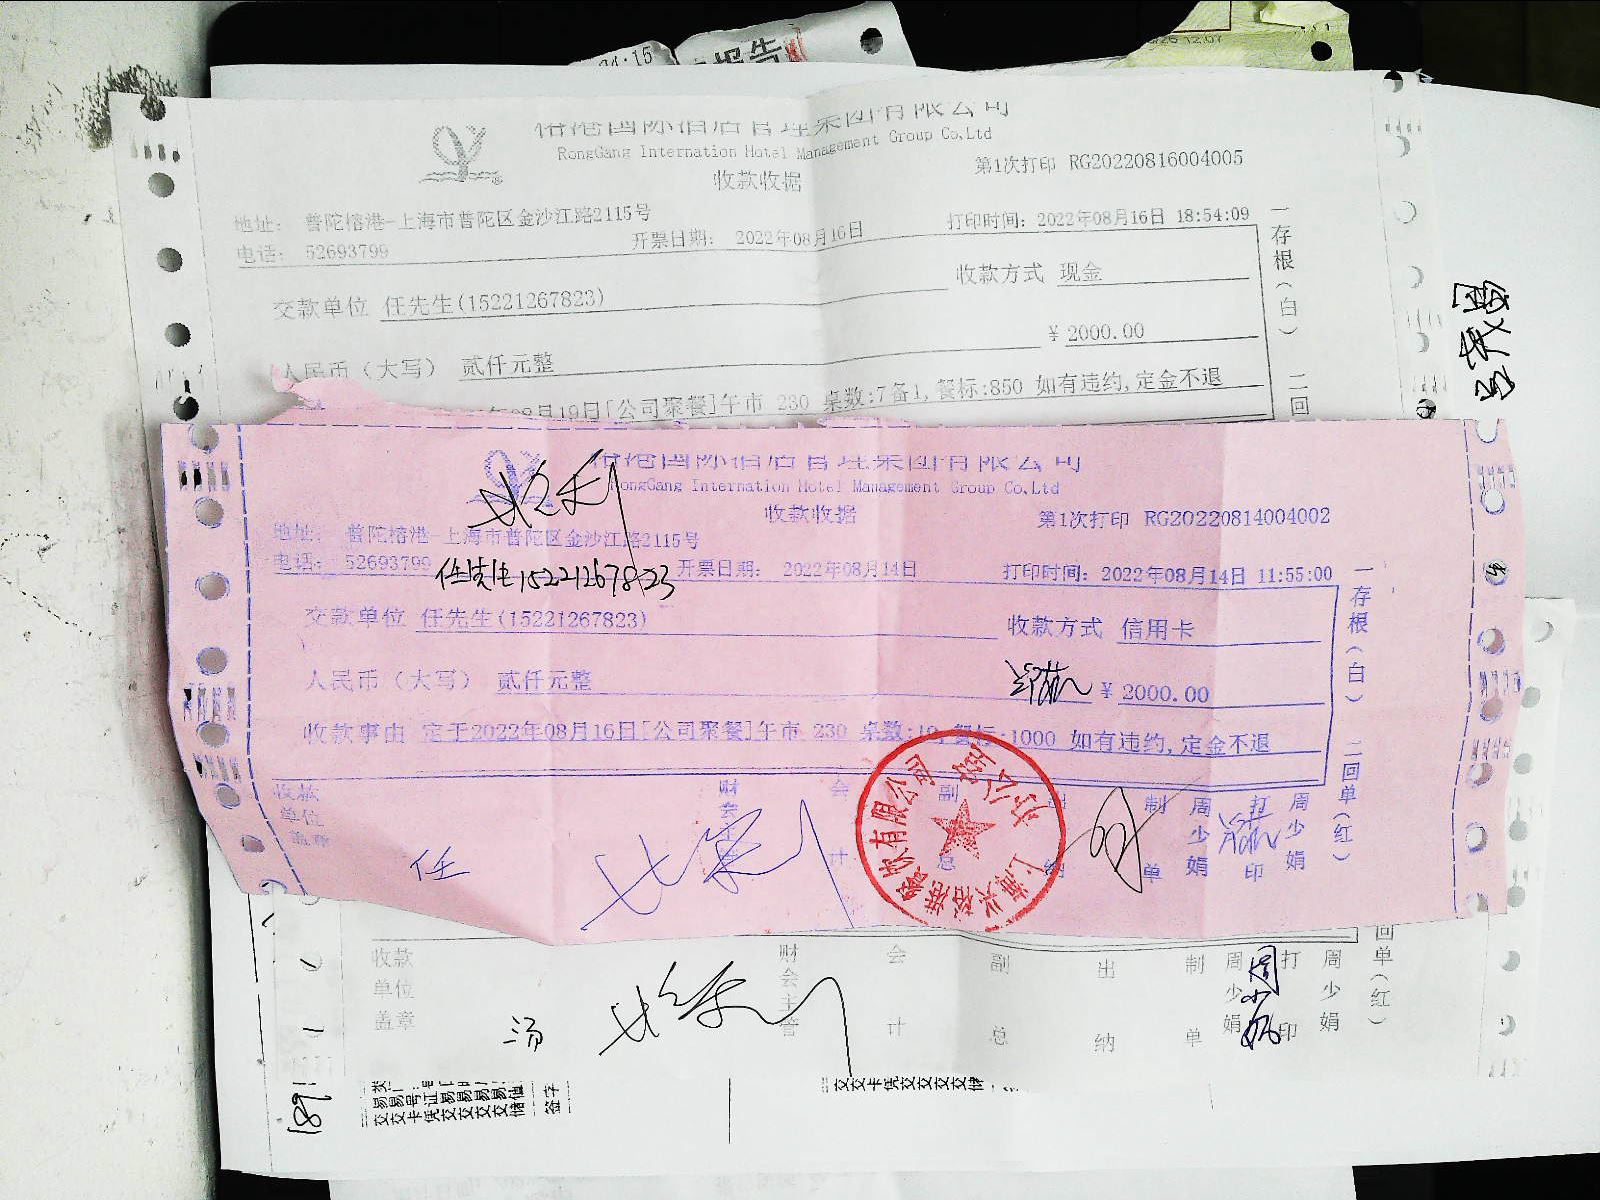 24:15
报告
12:07
榕港国际酒店管理集团有限公司
RongGang Internation Hotel Management Group Co,Ltd
收款收据
第1次打印 RG20220816004005
地址： 普陀榕港-上海市普陀区金沙江路2115号
电话： 52693799
开票日期： 2022年08月16日
打印时间：2022年08月16日 18:54:09
交款单位 任先生(15221267823)
收款方式 现金
人民币（大写） 贰仟元整
￥2000.00
年08月19日[公司聚餐]午市 230 桌数:7备1,餐标:850 如有违约,定金不退
一存根(白)
二回
榕港国际酒店管理集团有限公司
RongGang Internation Hotel Management Group Co,Ltd
收款收据
第1次打印 RG20220814004002
地址： 普陀榕港-上海市普陀区金沙江路2115号
电话： 52693799
任先生15221267823
开票日期： 2022年08月14日
打印时间：2022年08月14日 11:55:00
交款单位 任先生(15221267823)
收款方式 信用卡
人民币（大写） 贰仟元整
￥2000.00
收款事由 定于2022年08月16日[公司聚餐]午市 230 桌数:10,餐标:1000 如有违约,定金不退
一存根(白) 二回单(红)
收款单位盖章
财会主管
会计
副总
出纳
制单
周少娟
打印
周少娟
任
回单(红)
收款单位盖章
财会主管
会计
副总
出纳
制单
周少娟
打印
周少娟
周少娟
汤
1891
签字